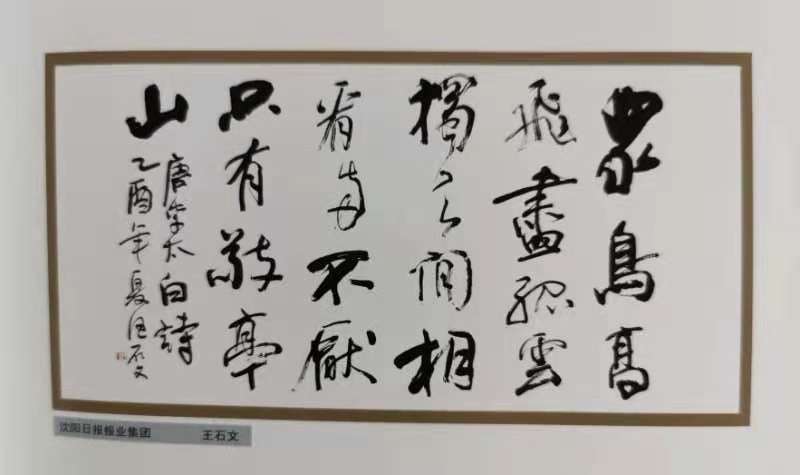 眾鳥高
飛盡孤雲
獨去閒相
看兩不厭
只有敬亭
山
唐李太白詩
乙酉年夏石文
沈阳日报报业集团 王石文